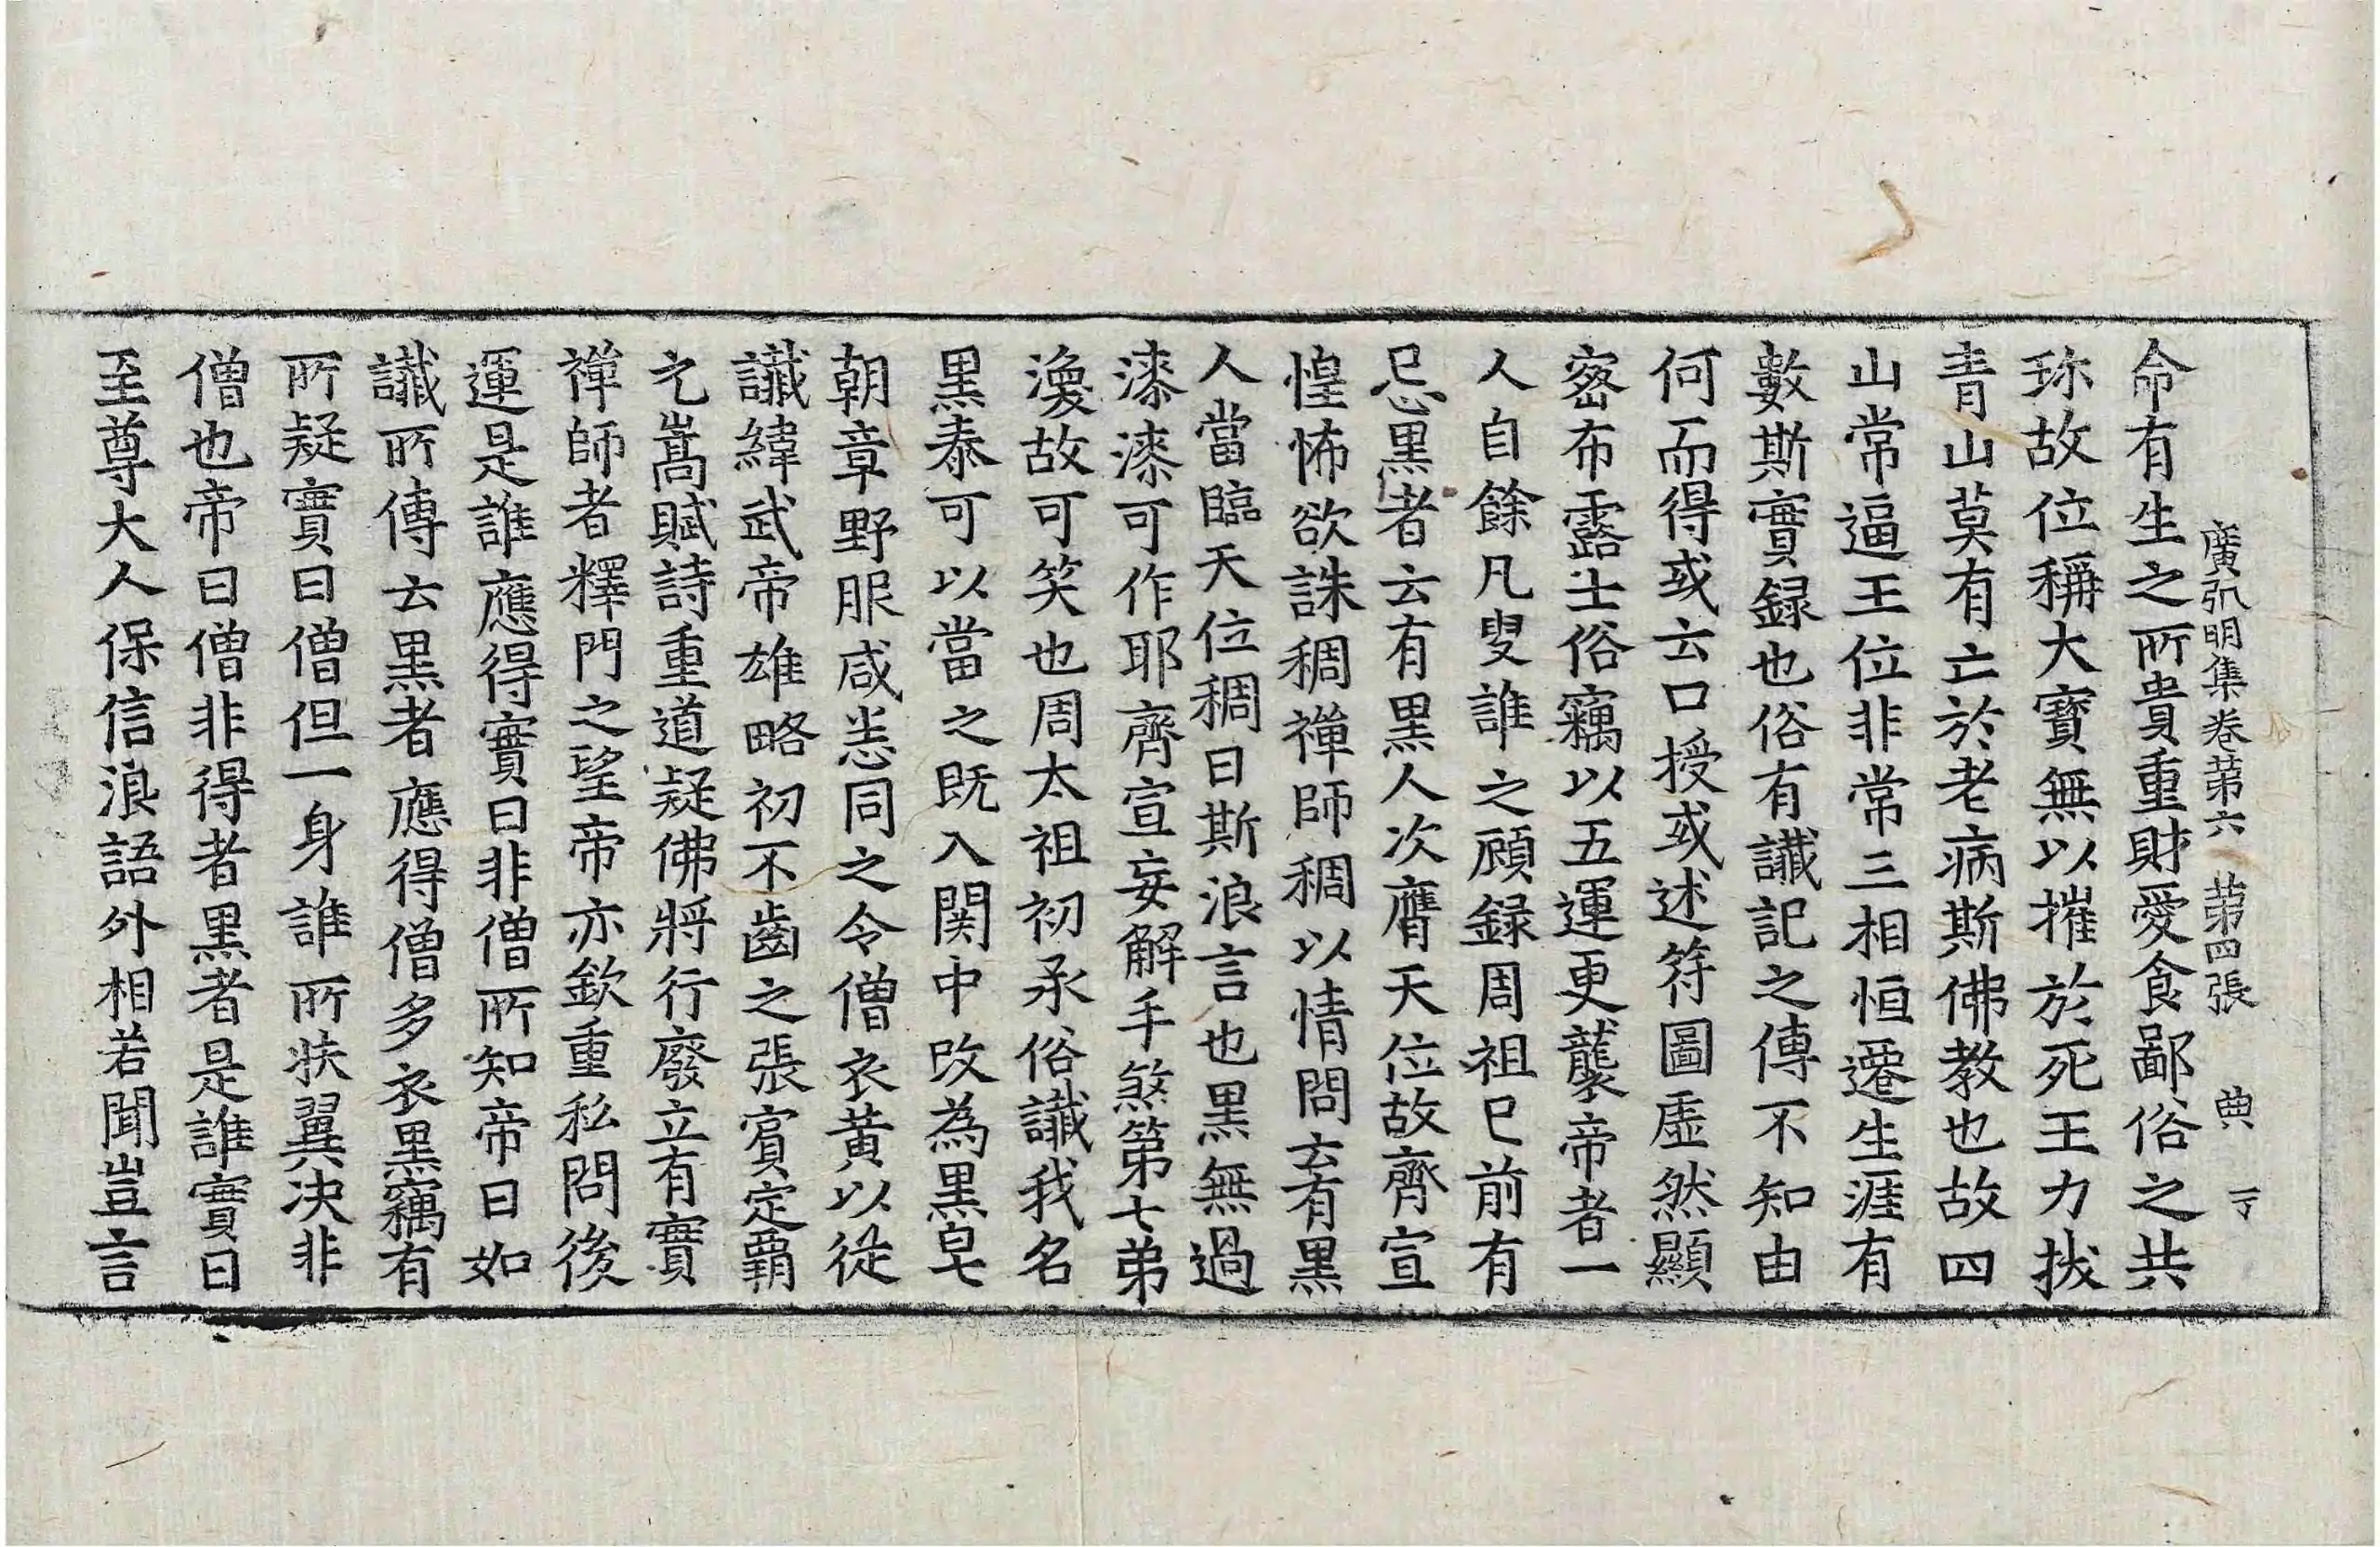 廣弘明集卷第六 第四張 典 丁
命有生之所貴重財愛食鄙俗之共
珎故位稱大寶無以摧於死王力拔
青山莫有亡於老病斯佛教也故四
山常逼王位非常三相恒遷生涯有
數斯實録也俗有讖記之傳不知由
何而得或云口授或述符圖虛然顯
密布露士俗竊以五運更襲帝者一
人自餘凡叟誰之顧録周祖巳前有
忌黑者云有黑人次膺天位故齊宣
惶怖欲誅稠禪師稠以情問云有黑
人當臨天位稠曰斯浪言也黑無過
漆漆可作耶齊宣妄解手煞第七弟
渙故可笑也周太祖初承俗讖我名
黑泰可以當之既入関中改為黑皂
朝章野服咸悉同之令僧衣黄以從
讖緯武帝雄略初不齒之張賓定霸
元嵩賦詩重道疑佛將行廢立有實
禪師者釋門之望帝亦欽重私問後
運是誰應得實曰非僧所知帝曰如
讖所傳云黒者應得僧多衣黒竊有
所疑實曰僧但一身誰所扶翼决非
僧也帝曰僧非得者黒者是誰實曰
至尊大人保信浪語外相若聞豈言